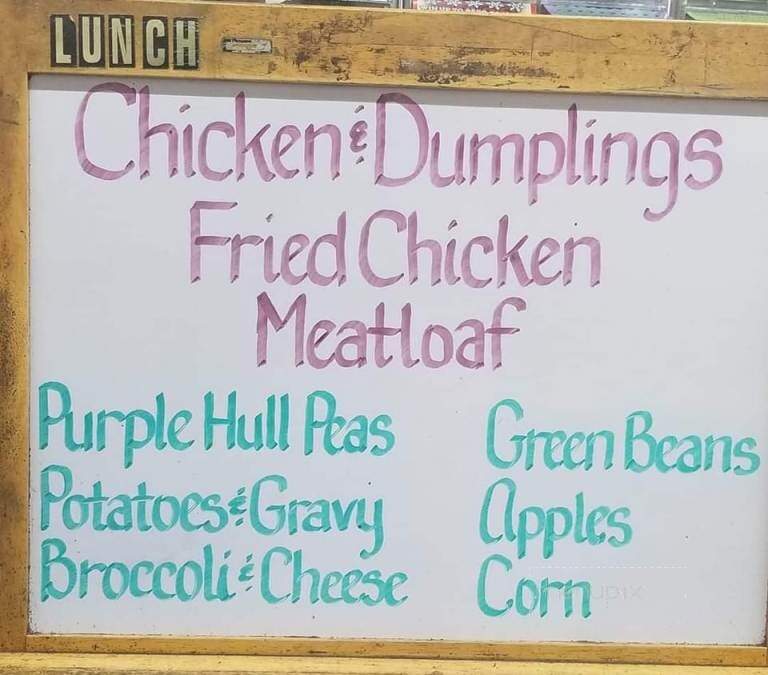 LUNCH
Chicken & Dumplings
Fried Chicken
Meatloaf
Purple Hull Peas
Potatoes & Gravy
Broccoli & Cheese
Green Beans
Apples
Corn